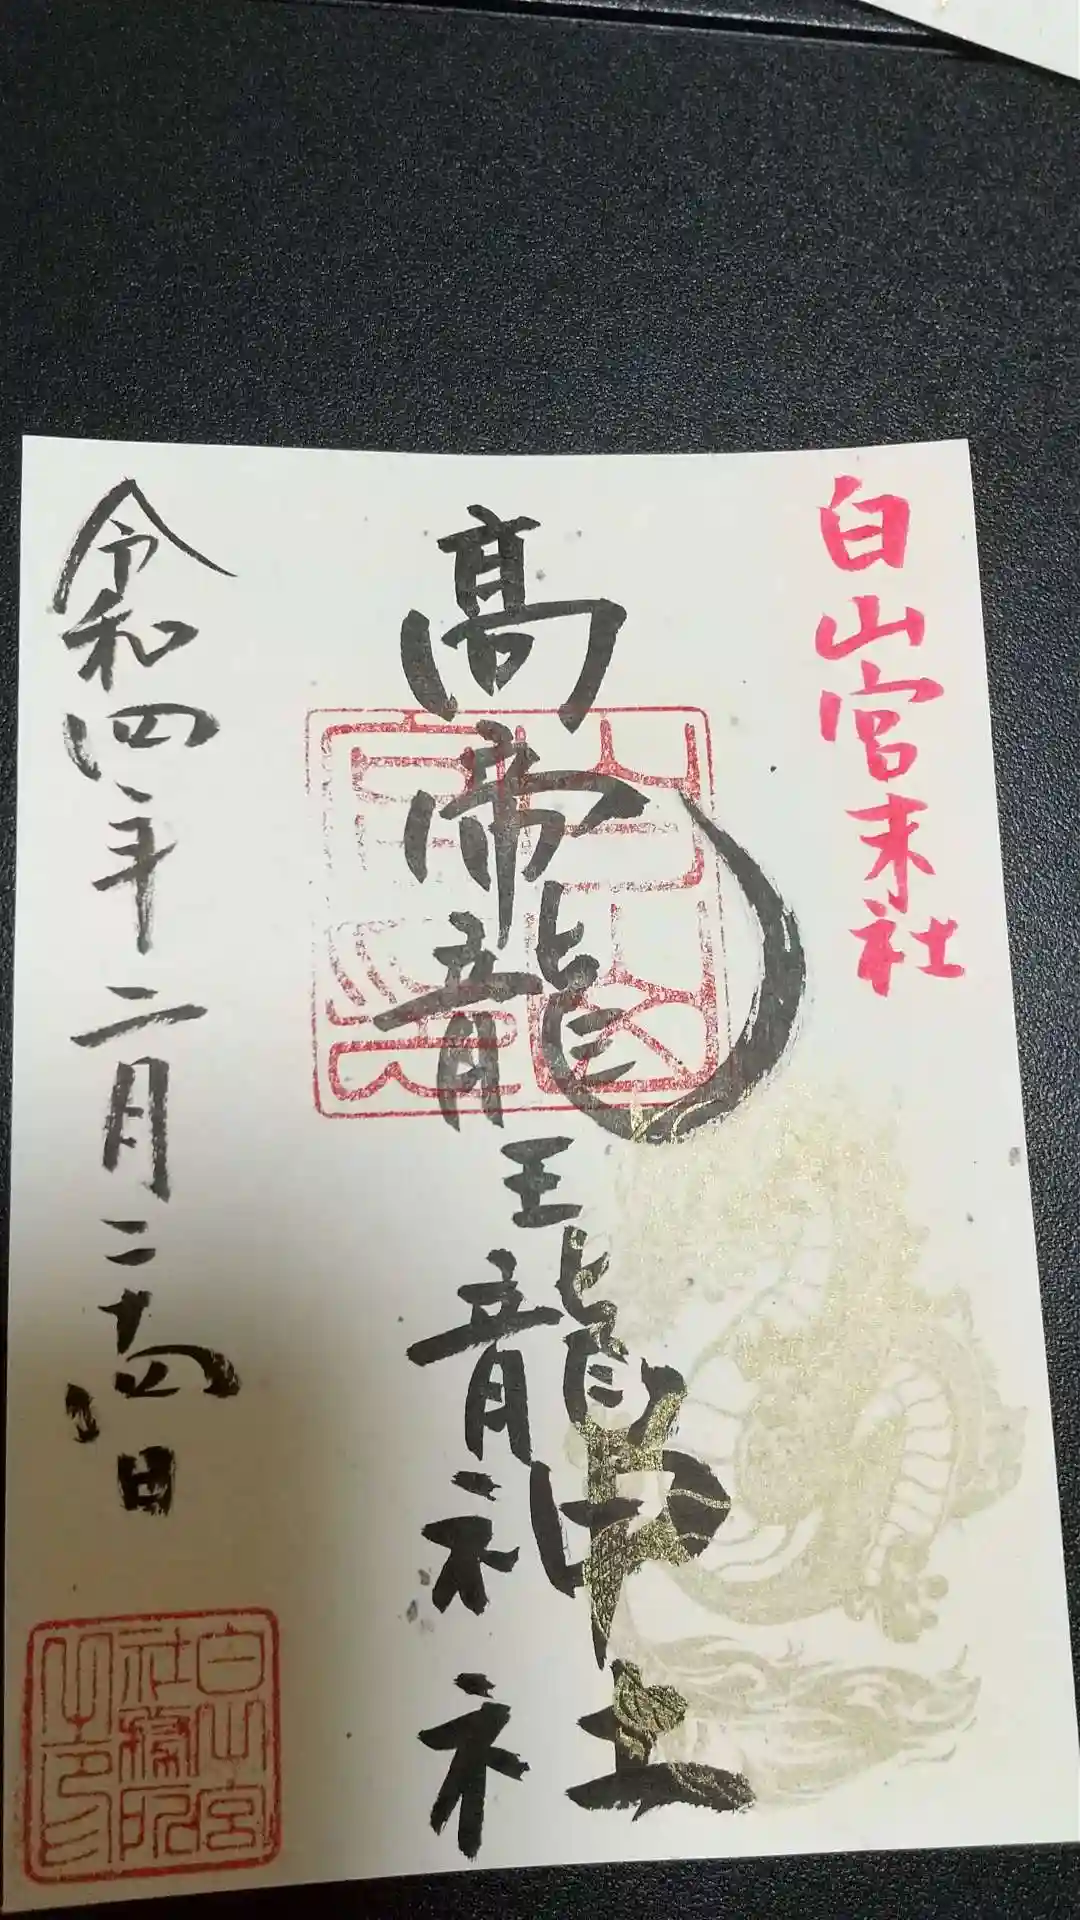 白山宮末社
髙帝龍王龍神社
令和四年二月二十四日
白山宮
社務所
之印